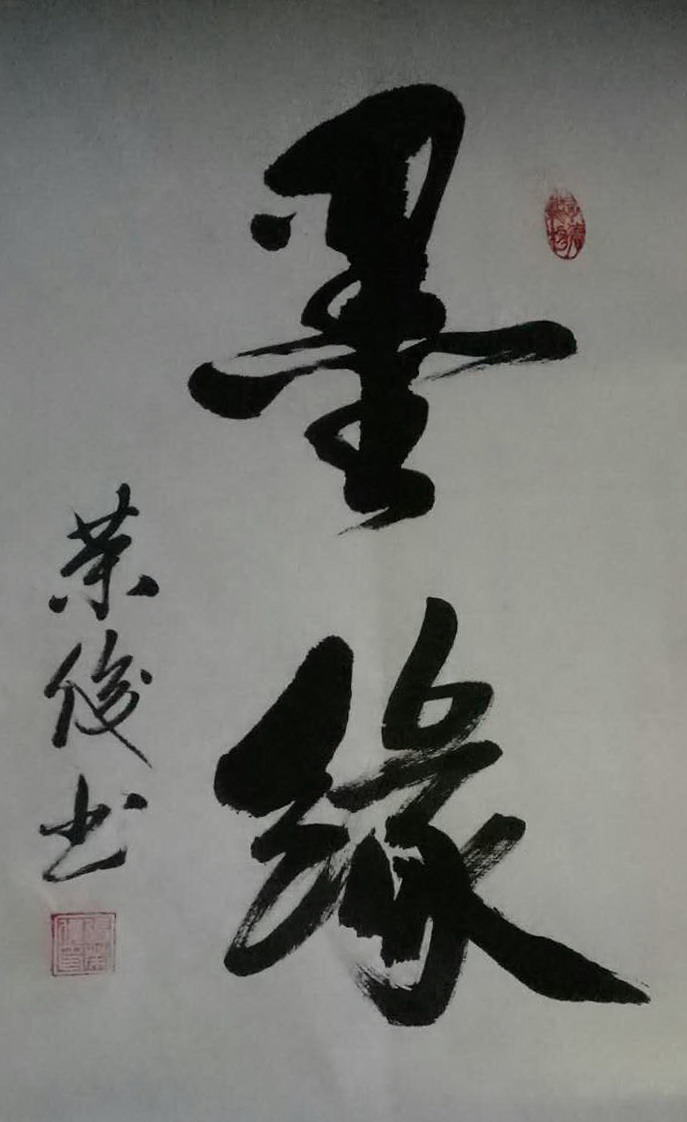 墨缘
荣俊书